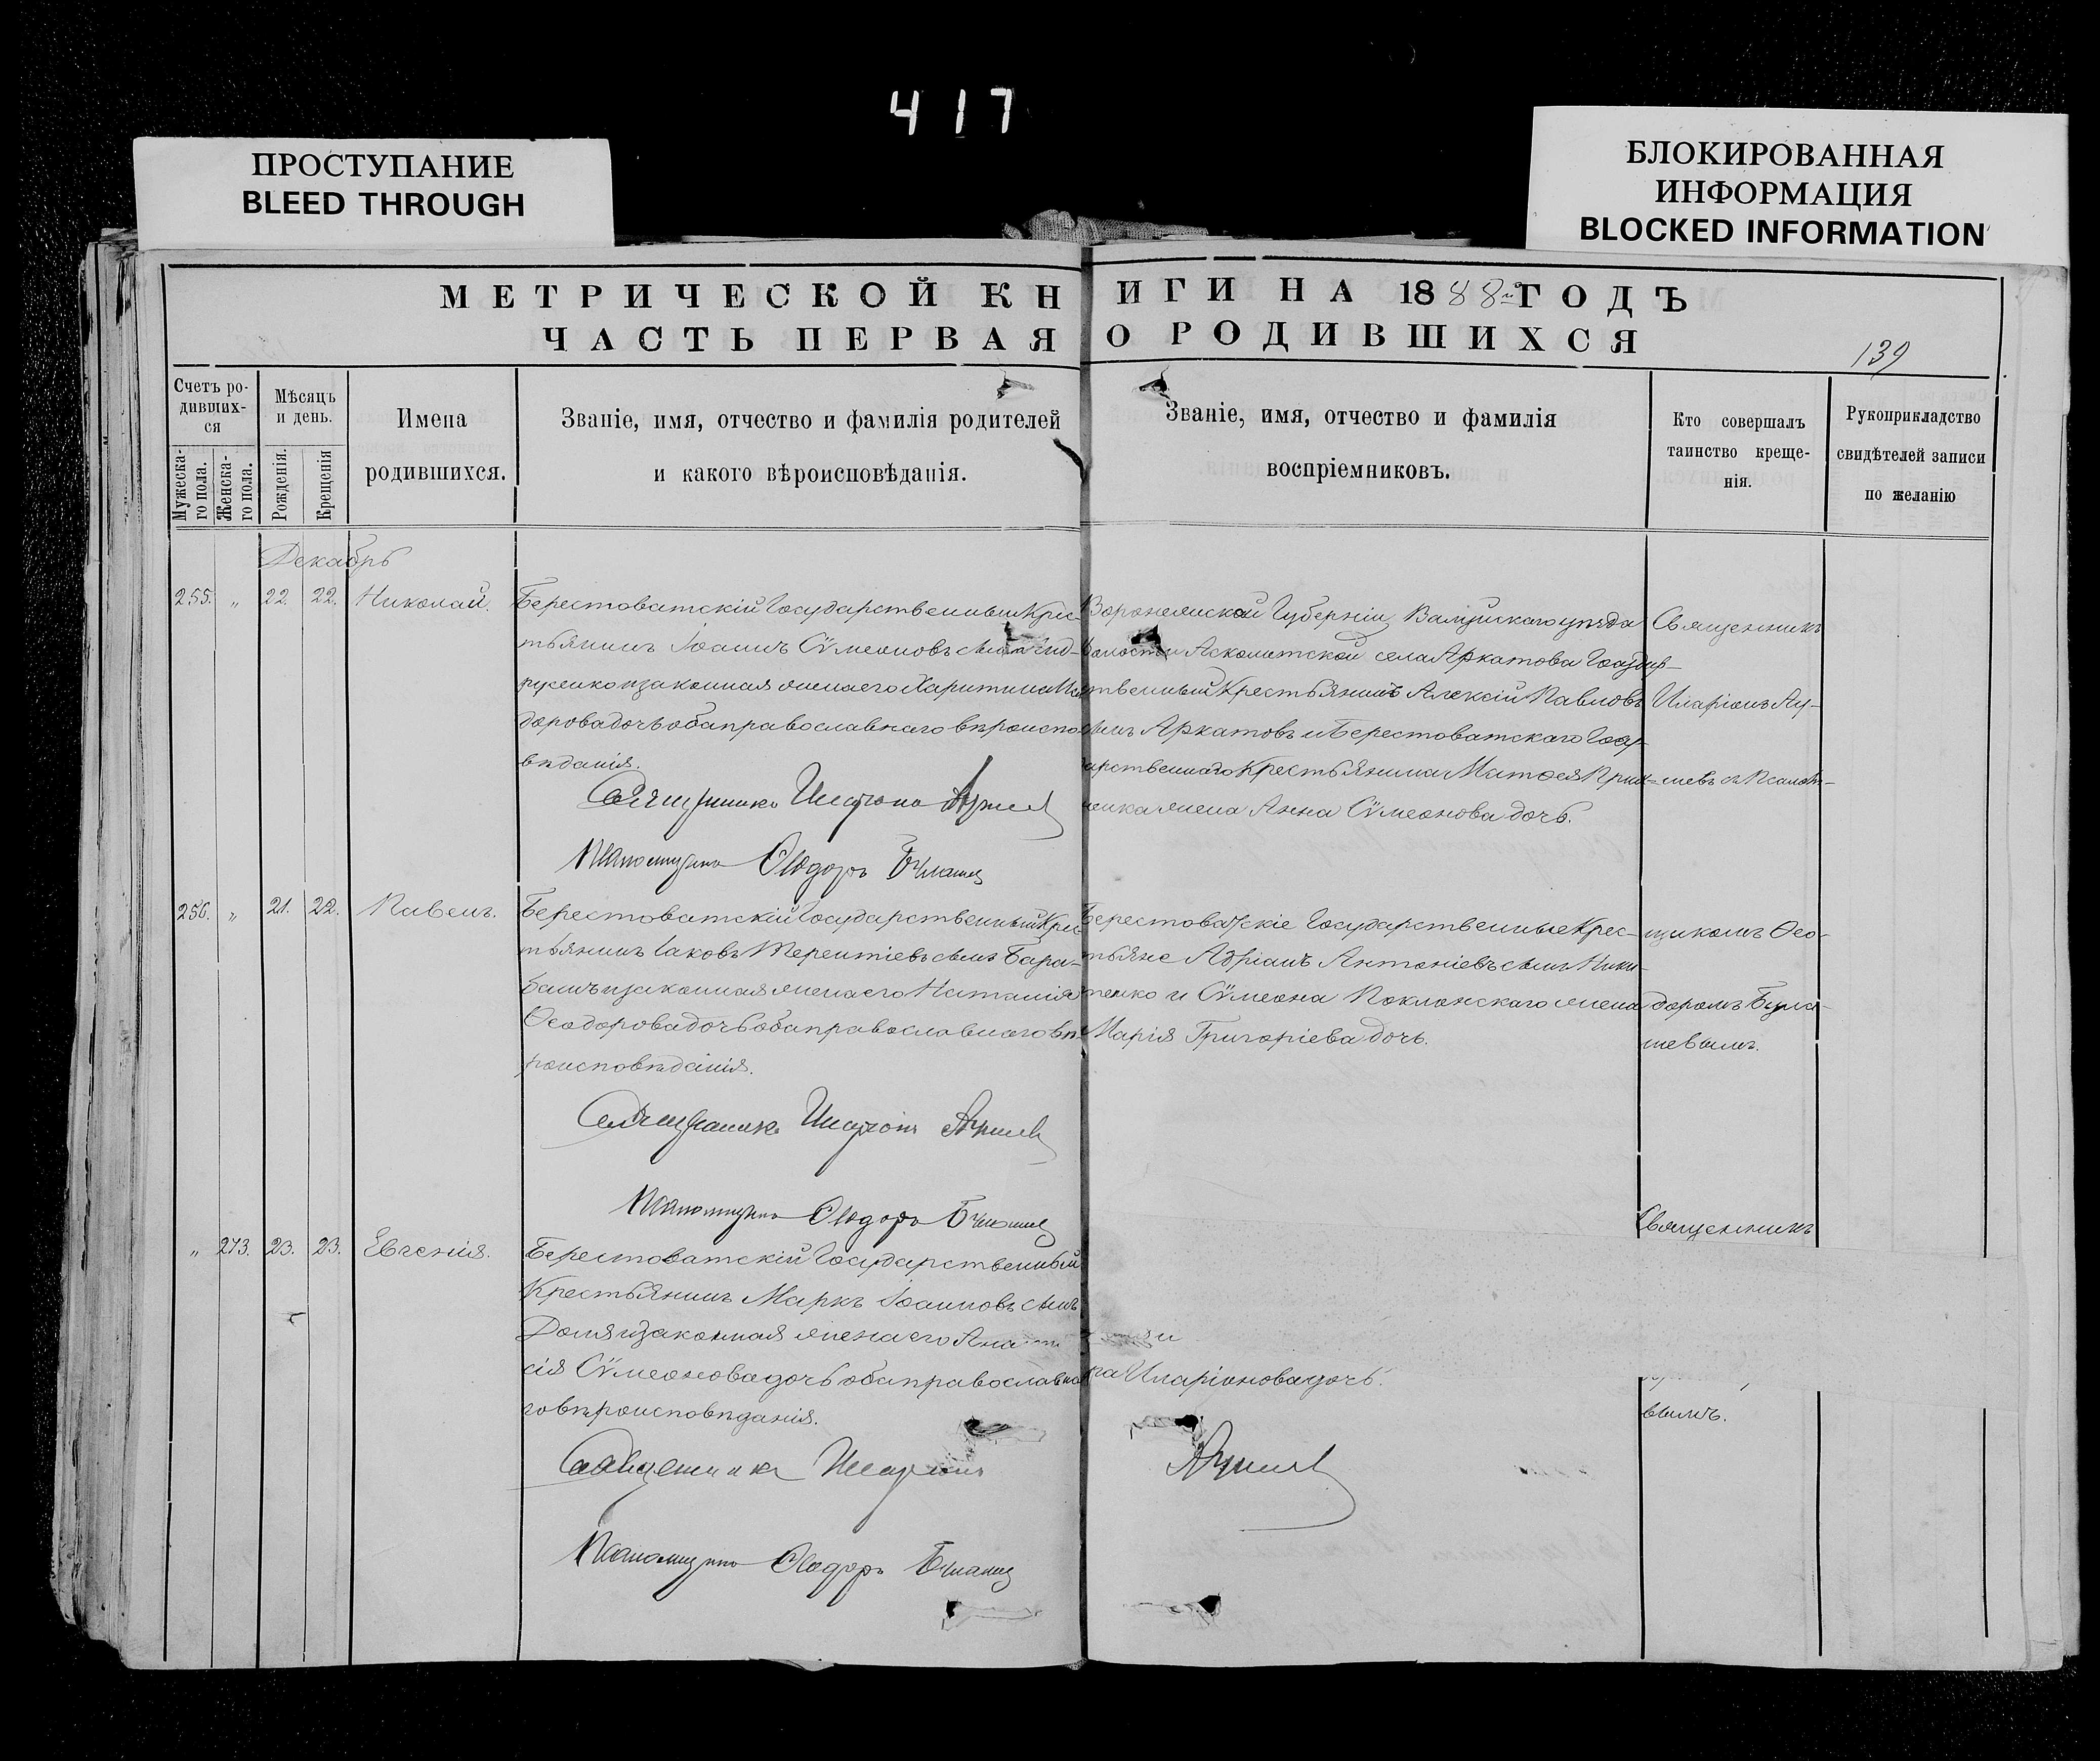 417
ПРОСТУПАНИЕ
BLEED THROUGH
БЛОКИРОВАННАЯ
ИНФОРМАЦИЯ
BLOCKED INFORMATION
МЕТРИЧЕСКОЙ КНИГИ НА 1888й ГОДЪ
ЧАСТЬ ПЕРВАЯ О РОДИВШИХСЯ
139
Счетъ ро-
дивших-
ся
Мужеска-
го пола.
Женска-
го пола.
Мѣсяцъ
и день.
Рожденія.
Крещенія
Имена
родившихся.
Званіе, имя, отчество и фамилія родителей
и какого вѣроисповѣданія.
Званіе, имя, отчество и фамилія
воспріемниковъ.
Кто совершалъ
таинство креще-
нія.
Рукоприкладство
свидѣтелей записи
по желанію
Декабрь
255. " 22. 22. Николай.
Берестоватскій Государственный Крес-
тьянинъ Іоаннъ Сѵмеоновъ сынъ
и законная жена его Харитина
дорова дочь оба православнаго вѣроиспо-
вѣданія.
Священникъ Иларіонъ
Ѳеодоръ
Воронежской Губерніи Валуйскаго уѣзда
волости села Аркатова Государ-
твенный Крестьянинъ Алексій Павловъ
сынъ Аркатовъ и Берестоватскаго Госу-
дарственнаго Крестьянина Матѳея
жена Анна Сѵмеонова дочь.
Священникъ
Иларіонъ
съ
256. " 21. 22. Павелъ.
Берестоватскій Государственный Крес-
тьянинъ Іаковъ Терентіевъ сынъ Бара-
банъ и законная жена его Наталія
Ѳеодорова дочь оба православнаго вѣ-
роисповѣданія.
Священникъ Иларіонъ
Ѳеодоръ
Берестоватскіе Государственные Крес-
тьяне Адріанъ Антоніевъ сынъ Ники-
тенко и Сѵмеона Поклонскаго жена
Марія Григоріева дочь.
щикомъ Ѳео-
доромъ
шевымъ.
" 273. 23. 23. Евгенія.
Берестоватскій Государственный
Крестьянинъ Маркъ Іоанновъ сынъ
Доля и законная жена его
сія Сѵмеонова дочь оба православна-
го вѣроисповѣданія.
Священникъ Иларіонъ
Ѳеодоръ
Иларіонова дочь.
Священникъ
вымъ.